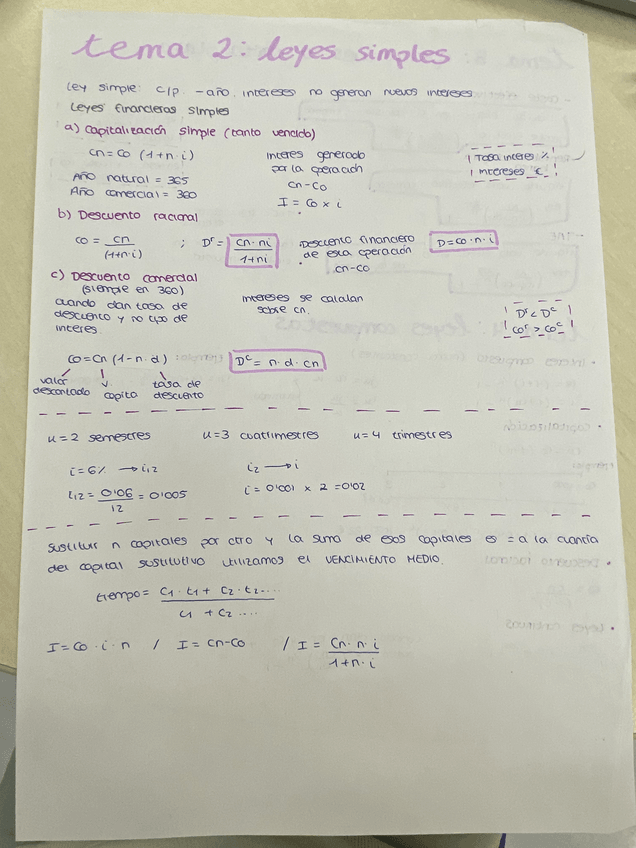 tema 2: leyes simples
Ley simple: c/p -año. intereses no generan nuevos intereses
Leyes financieras simples
a) Capitalización simple (tanto vencido)
Cn = Co (1+n·i)
Año natural = 365
Año comercial = 360
Interes generado
por la operación
Cn-Co
I = Co x i
Tasa interes %
Intereses €
b) Descuento racional
Co = Cn / (1+n·i) ; Dʳ = Cn·ni / 1+ni
Descuento financiero
de esta operación
Cn-Co
D = Co·n·i
c) Descuento comercial
(siempre en 360)
cuando dan tasa de
descuento y no tipo de
interes.
intereses se calculan
sobre Cn.
Dʳ < Dᶜ
Coʳ > Coᶜ
Co = Cn (1-n·d)
Dᶜ = n·d·Cn
valor
descontado
v.
capita
tasa de
descuento
u=2 semestres u=3 cuatrimestres u=4 trimestres
i=6% → i12
i12 = 0'06 / 12 = 0'005
i2 → i
i = 0'001 x 2 = 0'02
Sustituir n capitales por otro y la suma de esos capitales es = a la cuantía
del capital sustitutivo utilizamos el VENCIMIENTO MEDIO.
tiempo = C1·t1 + C2·t2.... / C1 + C2 ....
I = Co·i·n / I = Cn-Co / I = Cn·n·i / 1+n·i